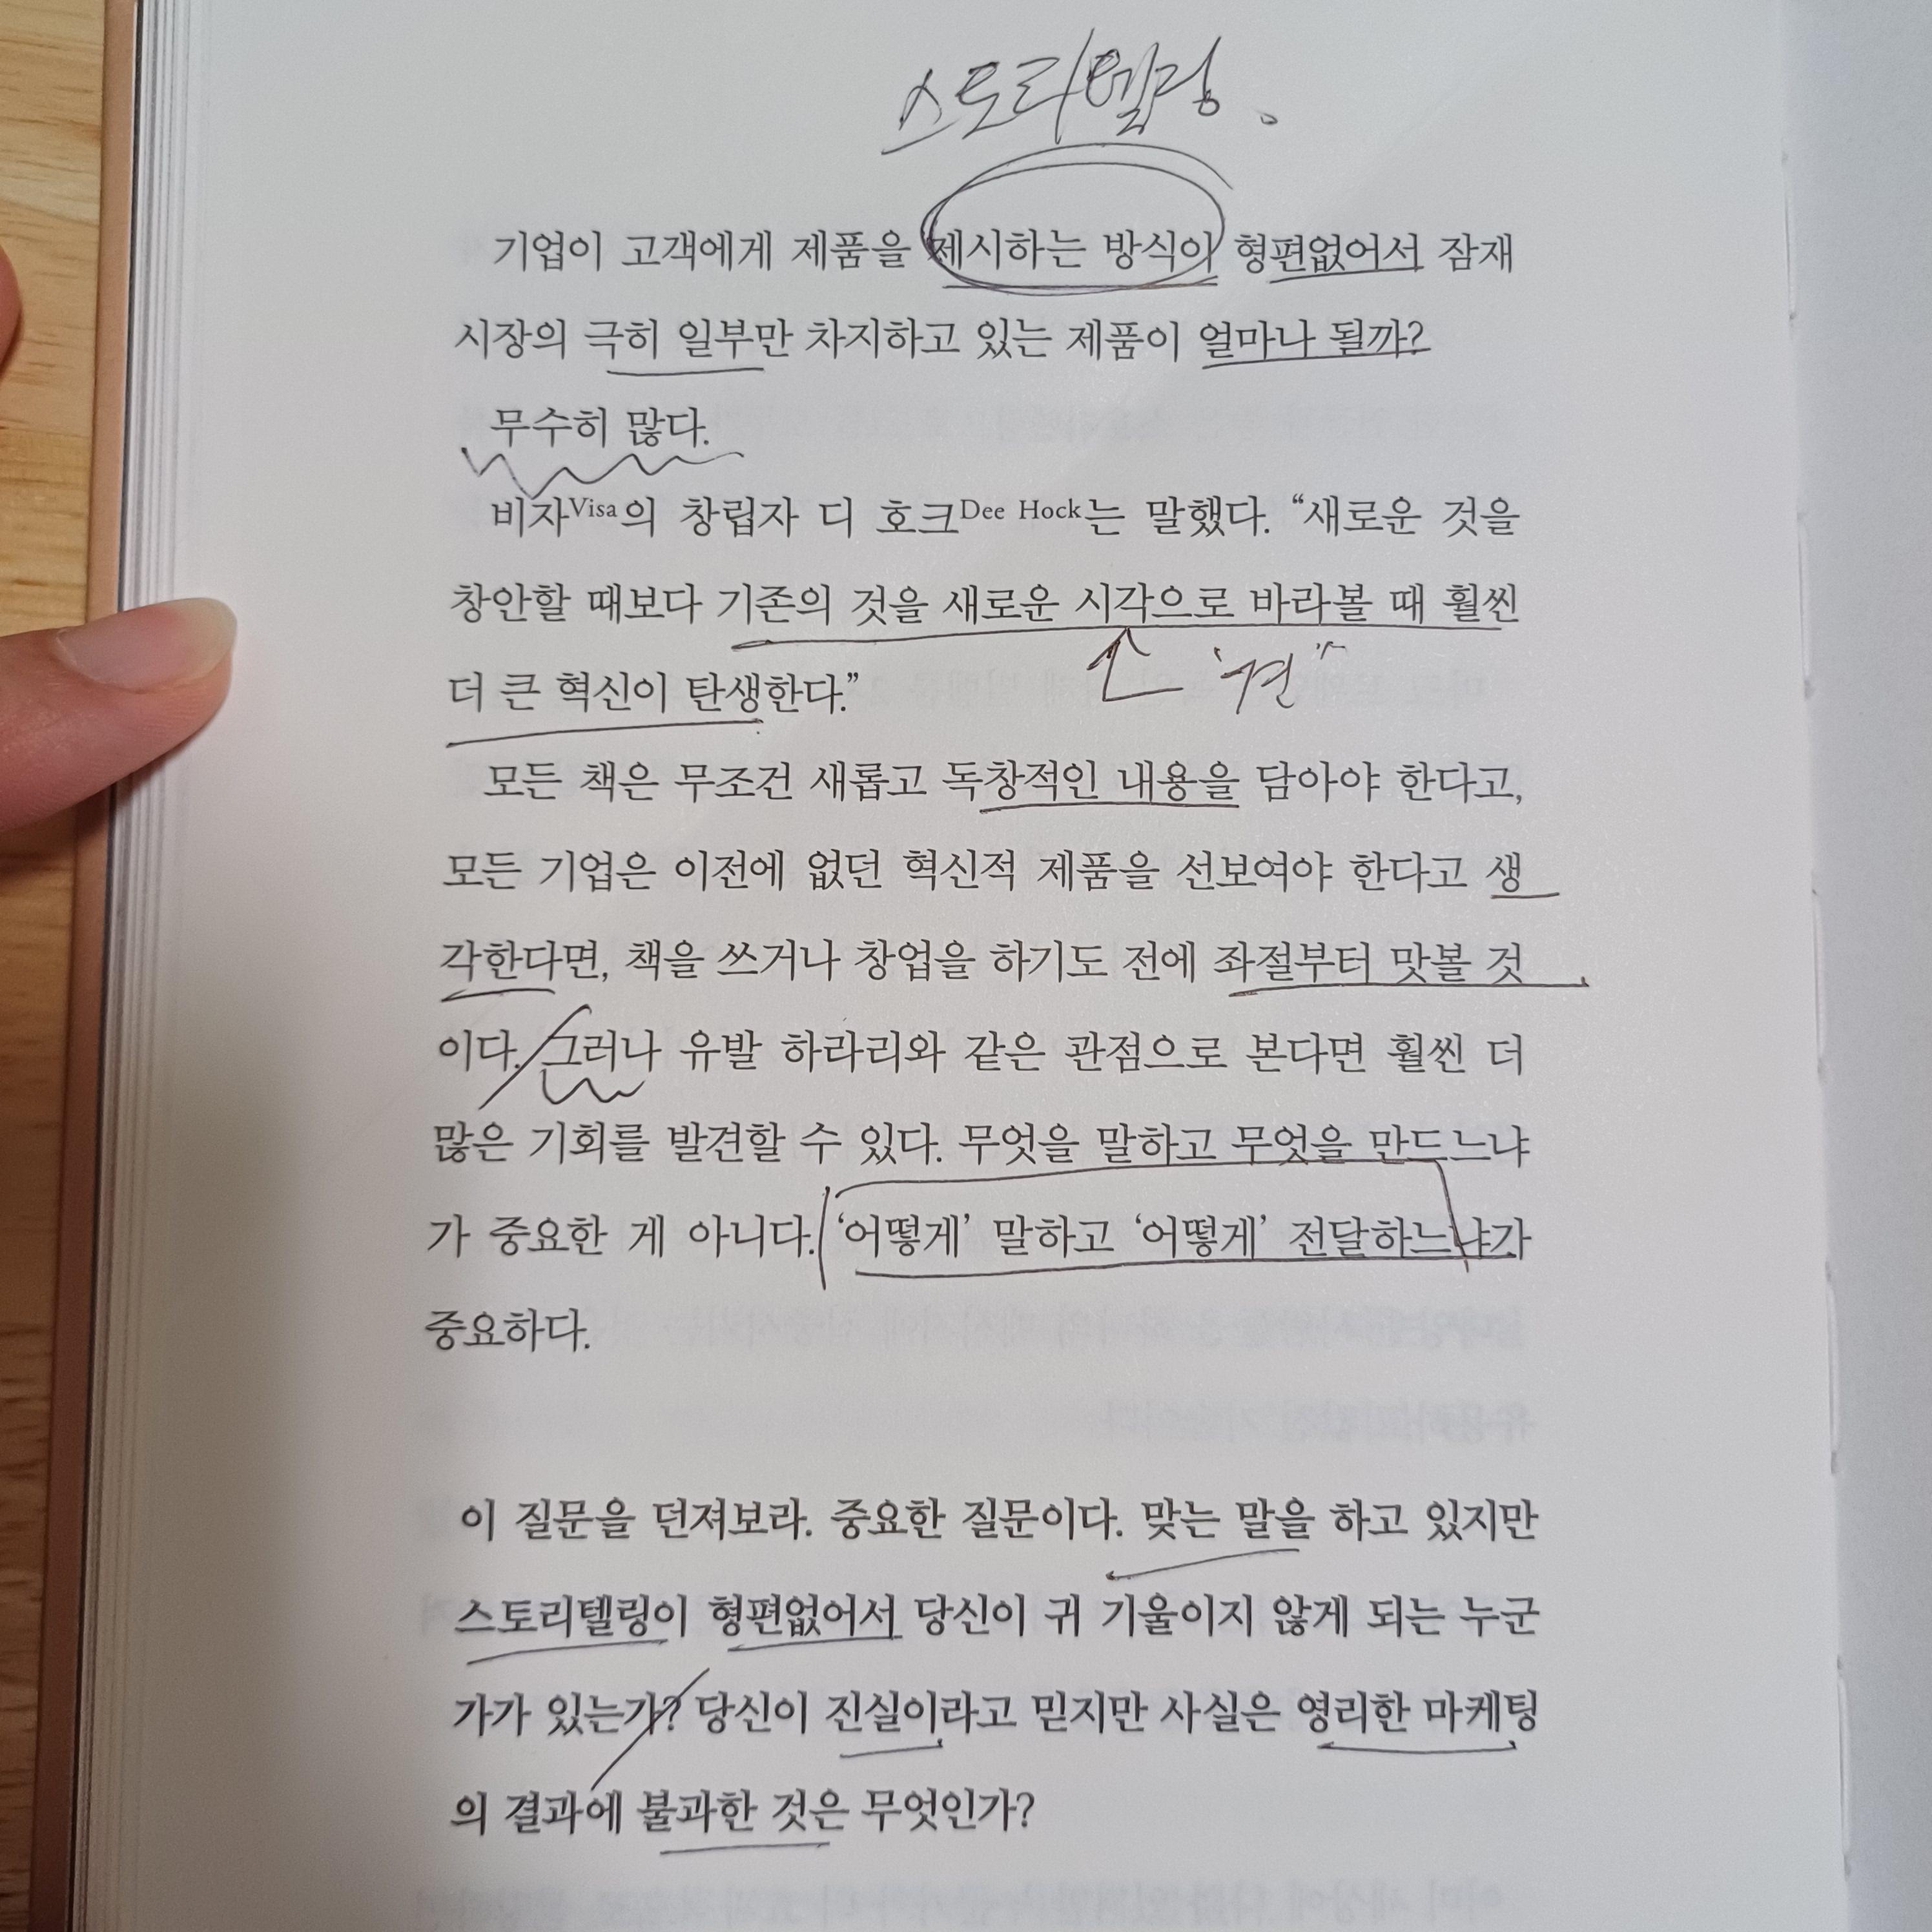 스토리텔링.
기업이 고객에게 제품을 제시하는 방식이 형편없어서 잠재
시장의 극히 일부만 차지하고 있는 제품이 얼마나 될까?
무수히 많다.
비자Visa의 창립자 디 호크Dee Hock는 말했다. “새로운 것을
창안할 때보다 기존의 것을 새로운 시각으로 바라볼 때 훨씬
더 큰 혁신이 탄생한다.”
모든 책은 무조건 새롭고 독창적인 내용을 담아야 한다고,
모든 기업은 이전에 없던 혁신적 제품을 선보여야 한다고 생
각한다면, 책을 쓰거나 창업을 하기도 전에 좌절부터 맛볼 것
이다. 그러나 유발 하라리와 같은 관점으로 본다면 훨씬 더
많은 기회를 발견할 수 있다. 무엇을 말하고 무엇을 만드느냐
가 중요한 게 아니다. ‘어떻게’ 말하고 ‘어떻게’ 전달하느냐가
중요하다.
이 질문을 던져보라. 중요한 질문이다. 맞는 말을 하고 있지만
스토리텔링이 형편없어서 당신이 귀 기울이지 않게 되는 누군
가가 있는가? 당신이 진실이라고 믿지만 사실은 영리한 마케팅
의 결과에 불과한 것은 무엇인가?